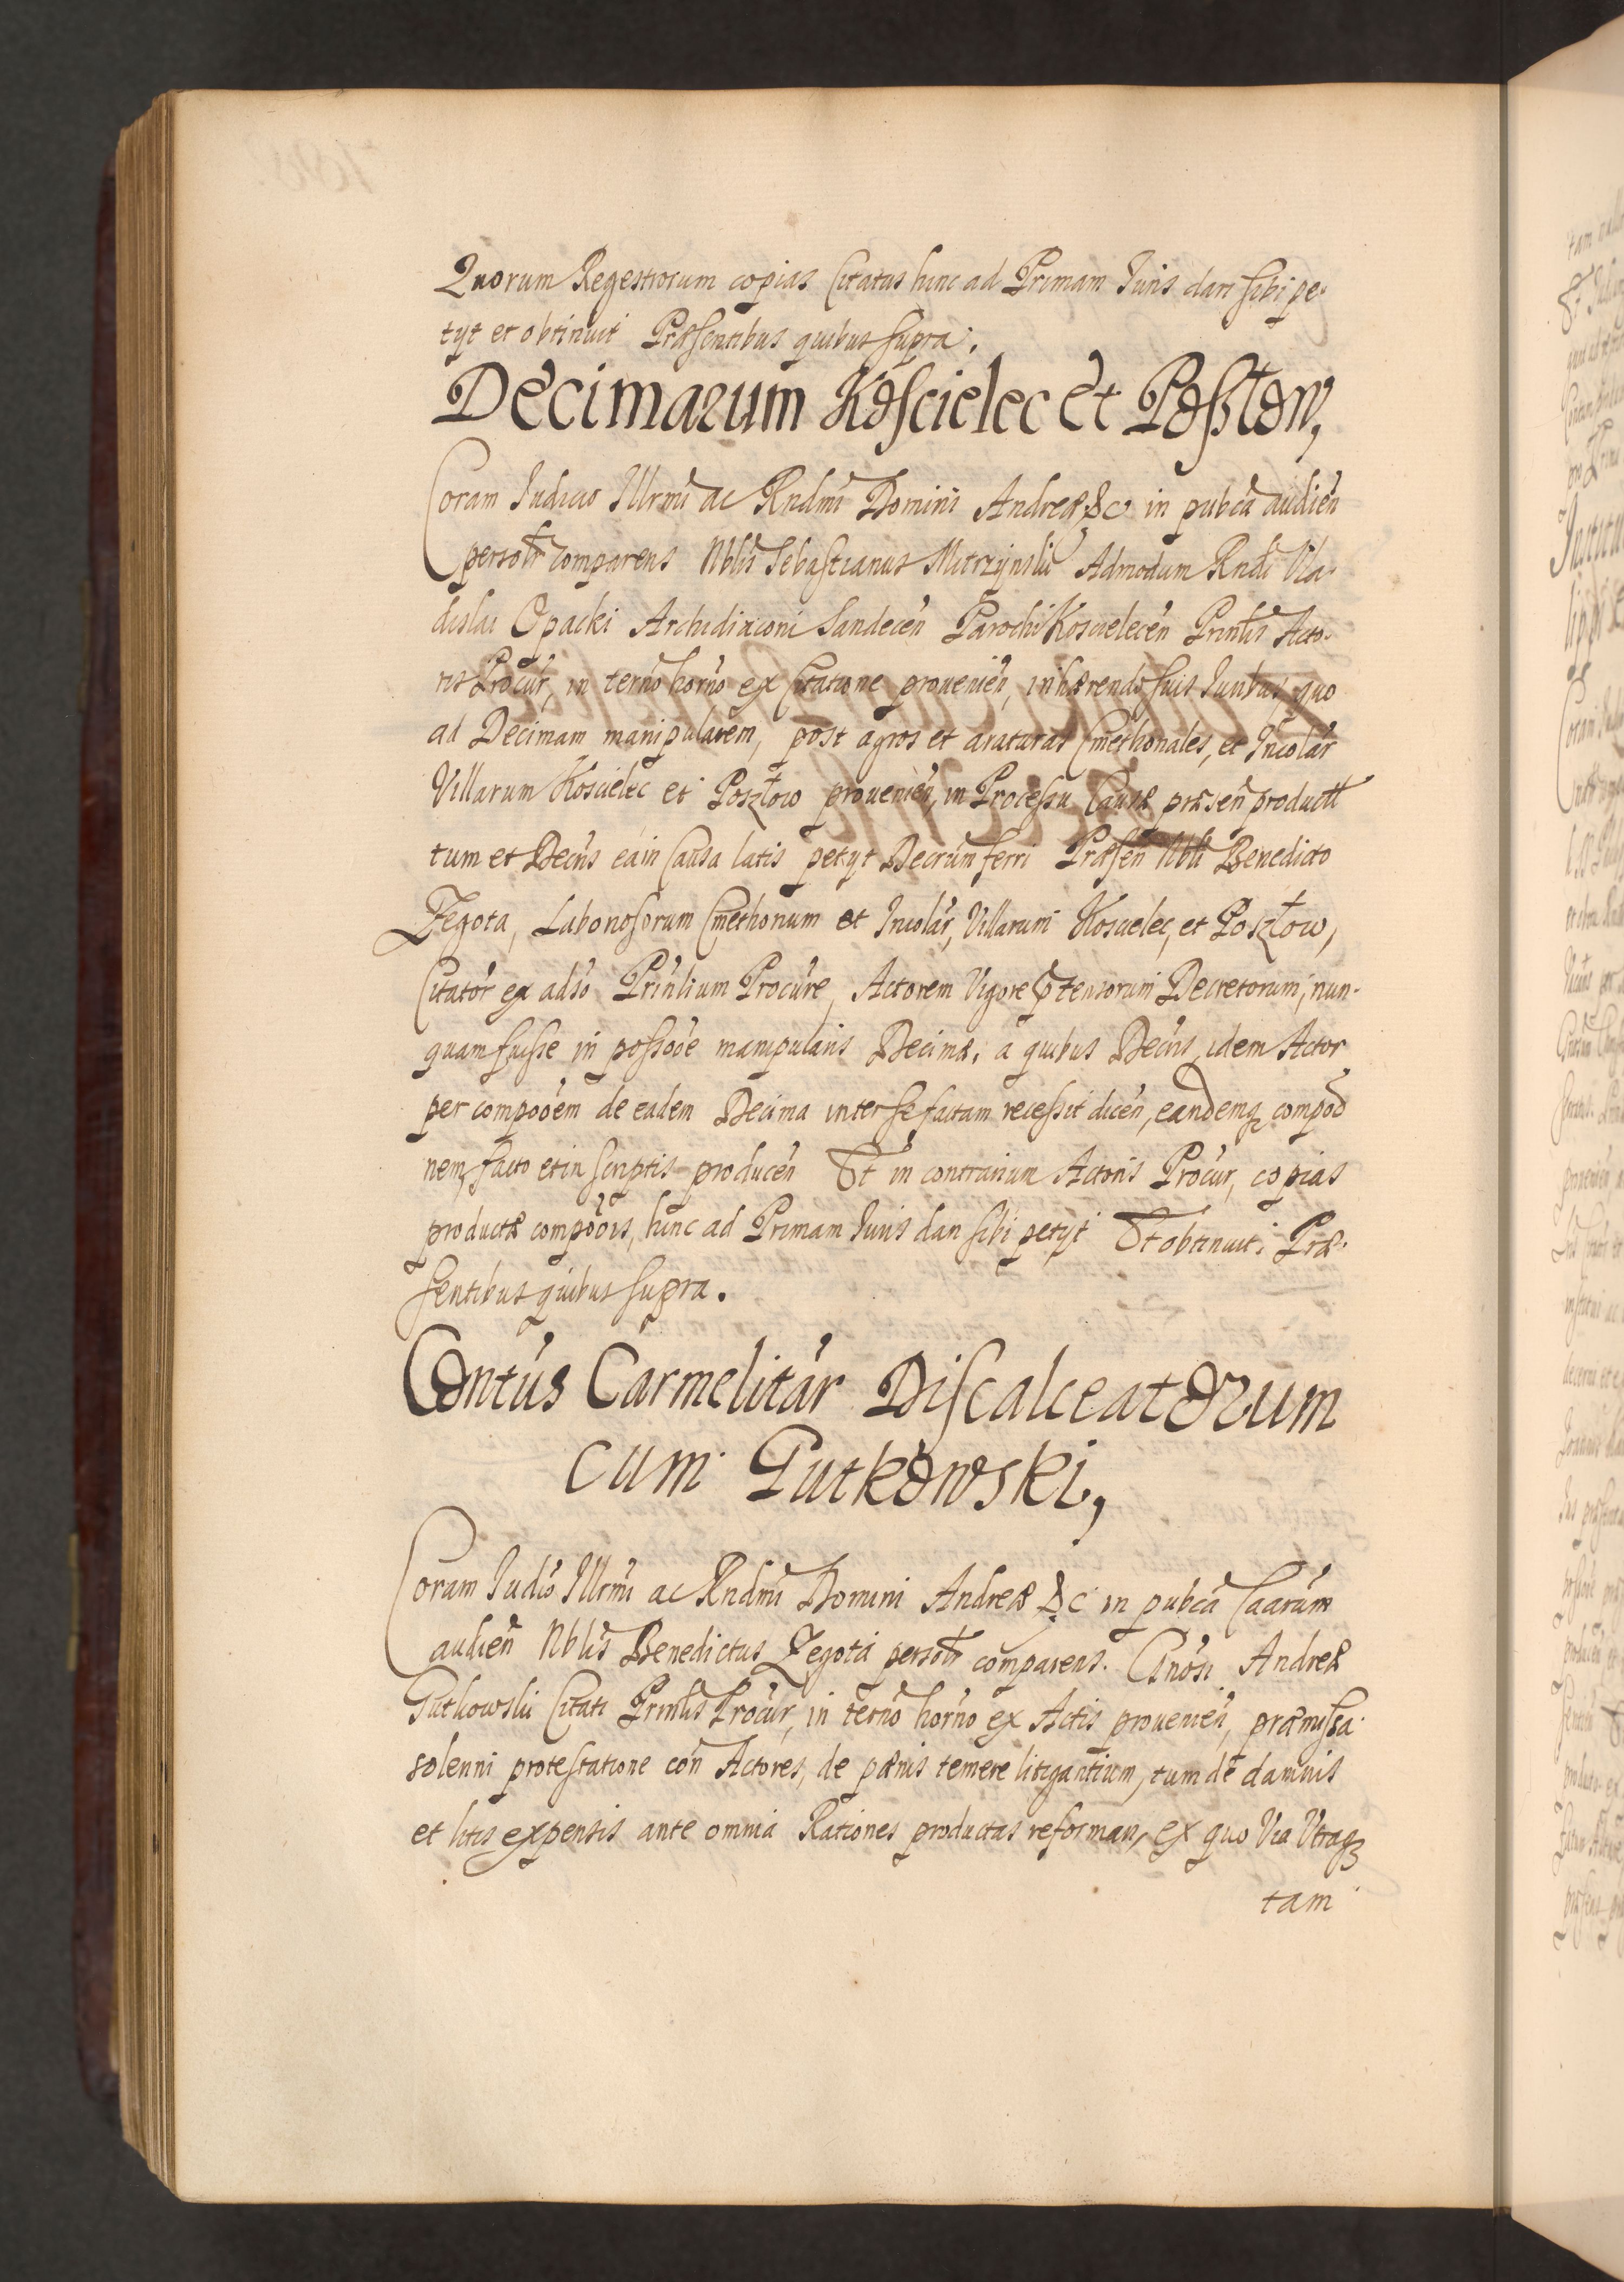 Quorum Regestrorum copias Citatus hinc ad Primam Iuris dari sibi pe-
tyt et obtinuit Præsentibus quibus supra.
Decimarum Koscielec et Posztow,
Coram Iudicio Illrmi ac Rndmi Domini Andreæ &c in pubca audien
persolr comparens Nblis Sebastianus Mitrzynski Admodum Rndi Vla-
dislai Opacki Archidiaconi Sandecen Parochi Koscielecen Prinlis Acto-
ris Procur, in terno horno ex Citatione provenien, inhærendo suis Iuribus quo
ad Decimam manipularem, post agros et araturas Cmethonales, et Incolar
Villarum Koscielec et Posztow provenien, in Processu Causæ præsen product
tum et Decris ea in Causa latis petyt Decrum ferri Præsen Nbli Benedicto
Zegota, Laboriosorum Cmethonum et Incolar, Villarum Koscielec, et Posztow,
Citator ex adso Prinlium Procure, Actorem Vigore prætensorum Decretorum, nun-
quam fuisse in possooe manipularis Decimæ, a quibus Decris idem Actor
per compooem de eadem Decima inter se factam recessit dicen, eandemq compoo
nem facto et in scriptis producen Et in contrarium Actoris Procur, copias
productæ compoois, hinc ad Primam Iuris dari sibi petyt Et obtinuit. Præ-
sentibus quibus supra.
Contus Carmelitar Discalceatorum
cum Gutkowski,
Coram Iudio Illrmi ac Rndmi Domini Andreæ &c in pubca Caarum
audien Nblis Benedictus Zegota persolr comparens. Gnosi Andreæ
Gutkowski Citati Prinlis Procur, in terno horno ex Actis provenien, præmissa
solenni protestatione con Actores, de pænis temere litigantium, tum de damnis
et litis expensis ante omnia Rationes productas reforman, ex quo Via Utraq
tam